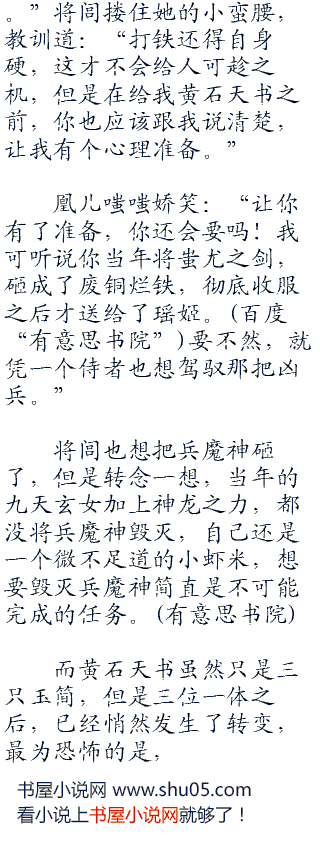 。”将闾搂住她的小蛮腰，
教训道：“打铁还得自身
硬，这才不会给人可趁之
机，但是在给我黄石天书之
前，你也应该跟我说清楚，
让我有个心理准备。”
凰儿嗤嗤娇笑：“让你
有了准备，你还会要吗！我
可听说你当年将蚩尤之剑，
砸成了废铜烂铁，彻底收服
之后才送给了瑶姬。(百度
“有意思书院”)要不然，就
凭一个侍者也想驾驭那把凶
兵。”
将闾也想把兵魔神砸
了，但是转念一想，当年的
九天玄女加上神龙之力，都
没将兵魔神毁灭，自己还是
一个微不足道的小虾米，想
要毁灭兵魔神简直是不可能
完成的任务。(有意思书院)
而黄石天书虽然只是三
只玉简，但是三位一体之
后，已经悄然发生了转变，
最为恐怖的是，
书屋小说网 www.shu05.com
看小说上书屋小说网就够了！